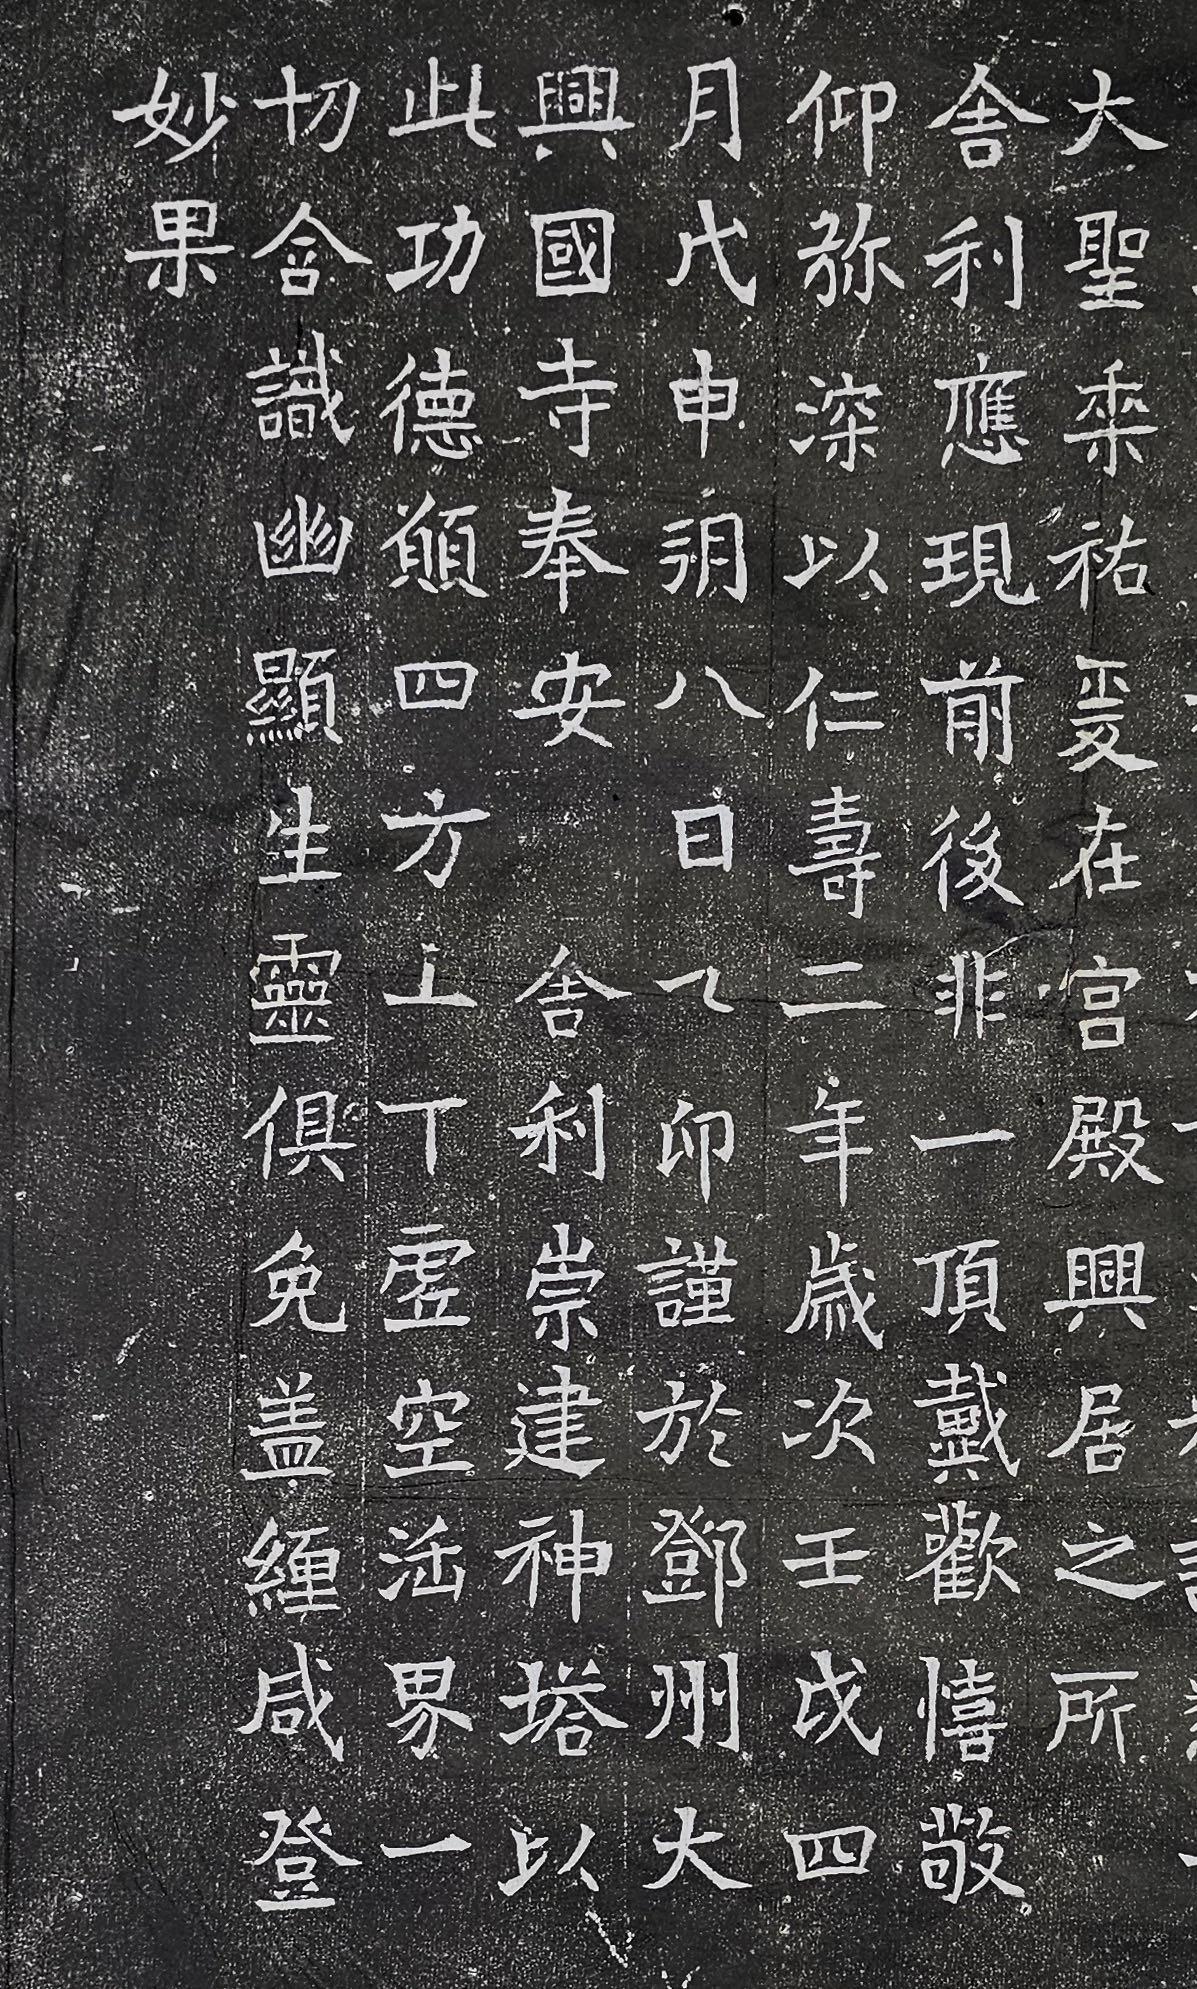 大聖垂祐爰在宮殿興居之所
舍利應現前後非一頂戴歡憘敬
仰弥深以仁壽二年歲次壬戌四
月戊申朔八日乙卯謹於鄧州大
興國寺奉安　舍利崇建神塔以
此功德願四方上下虛空法界一
切含識幽顯生靈俱免盖纏咸登
妙果